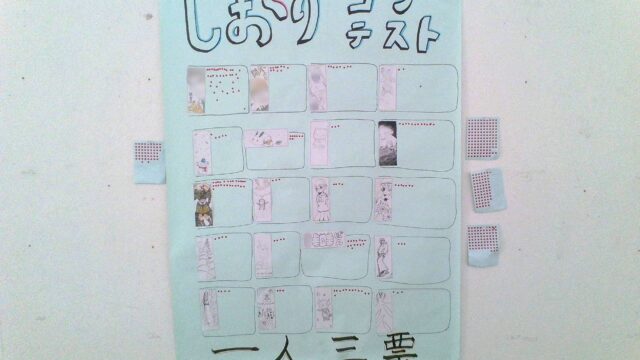 しおり コン
テスト
一人三票